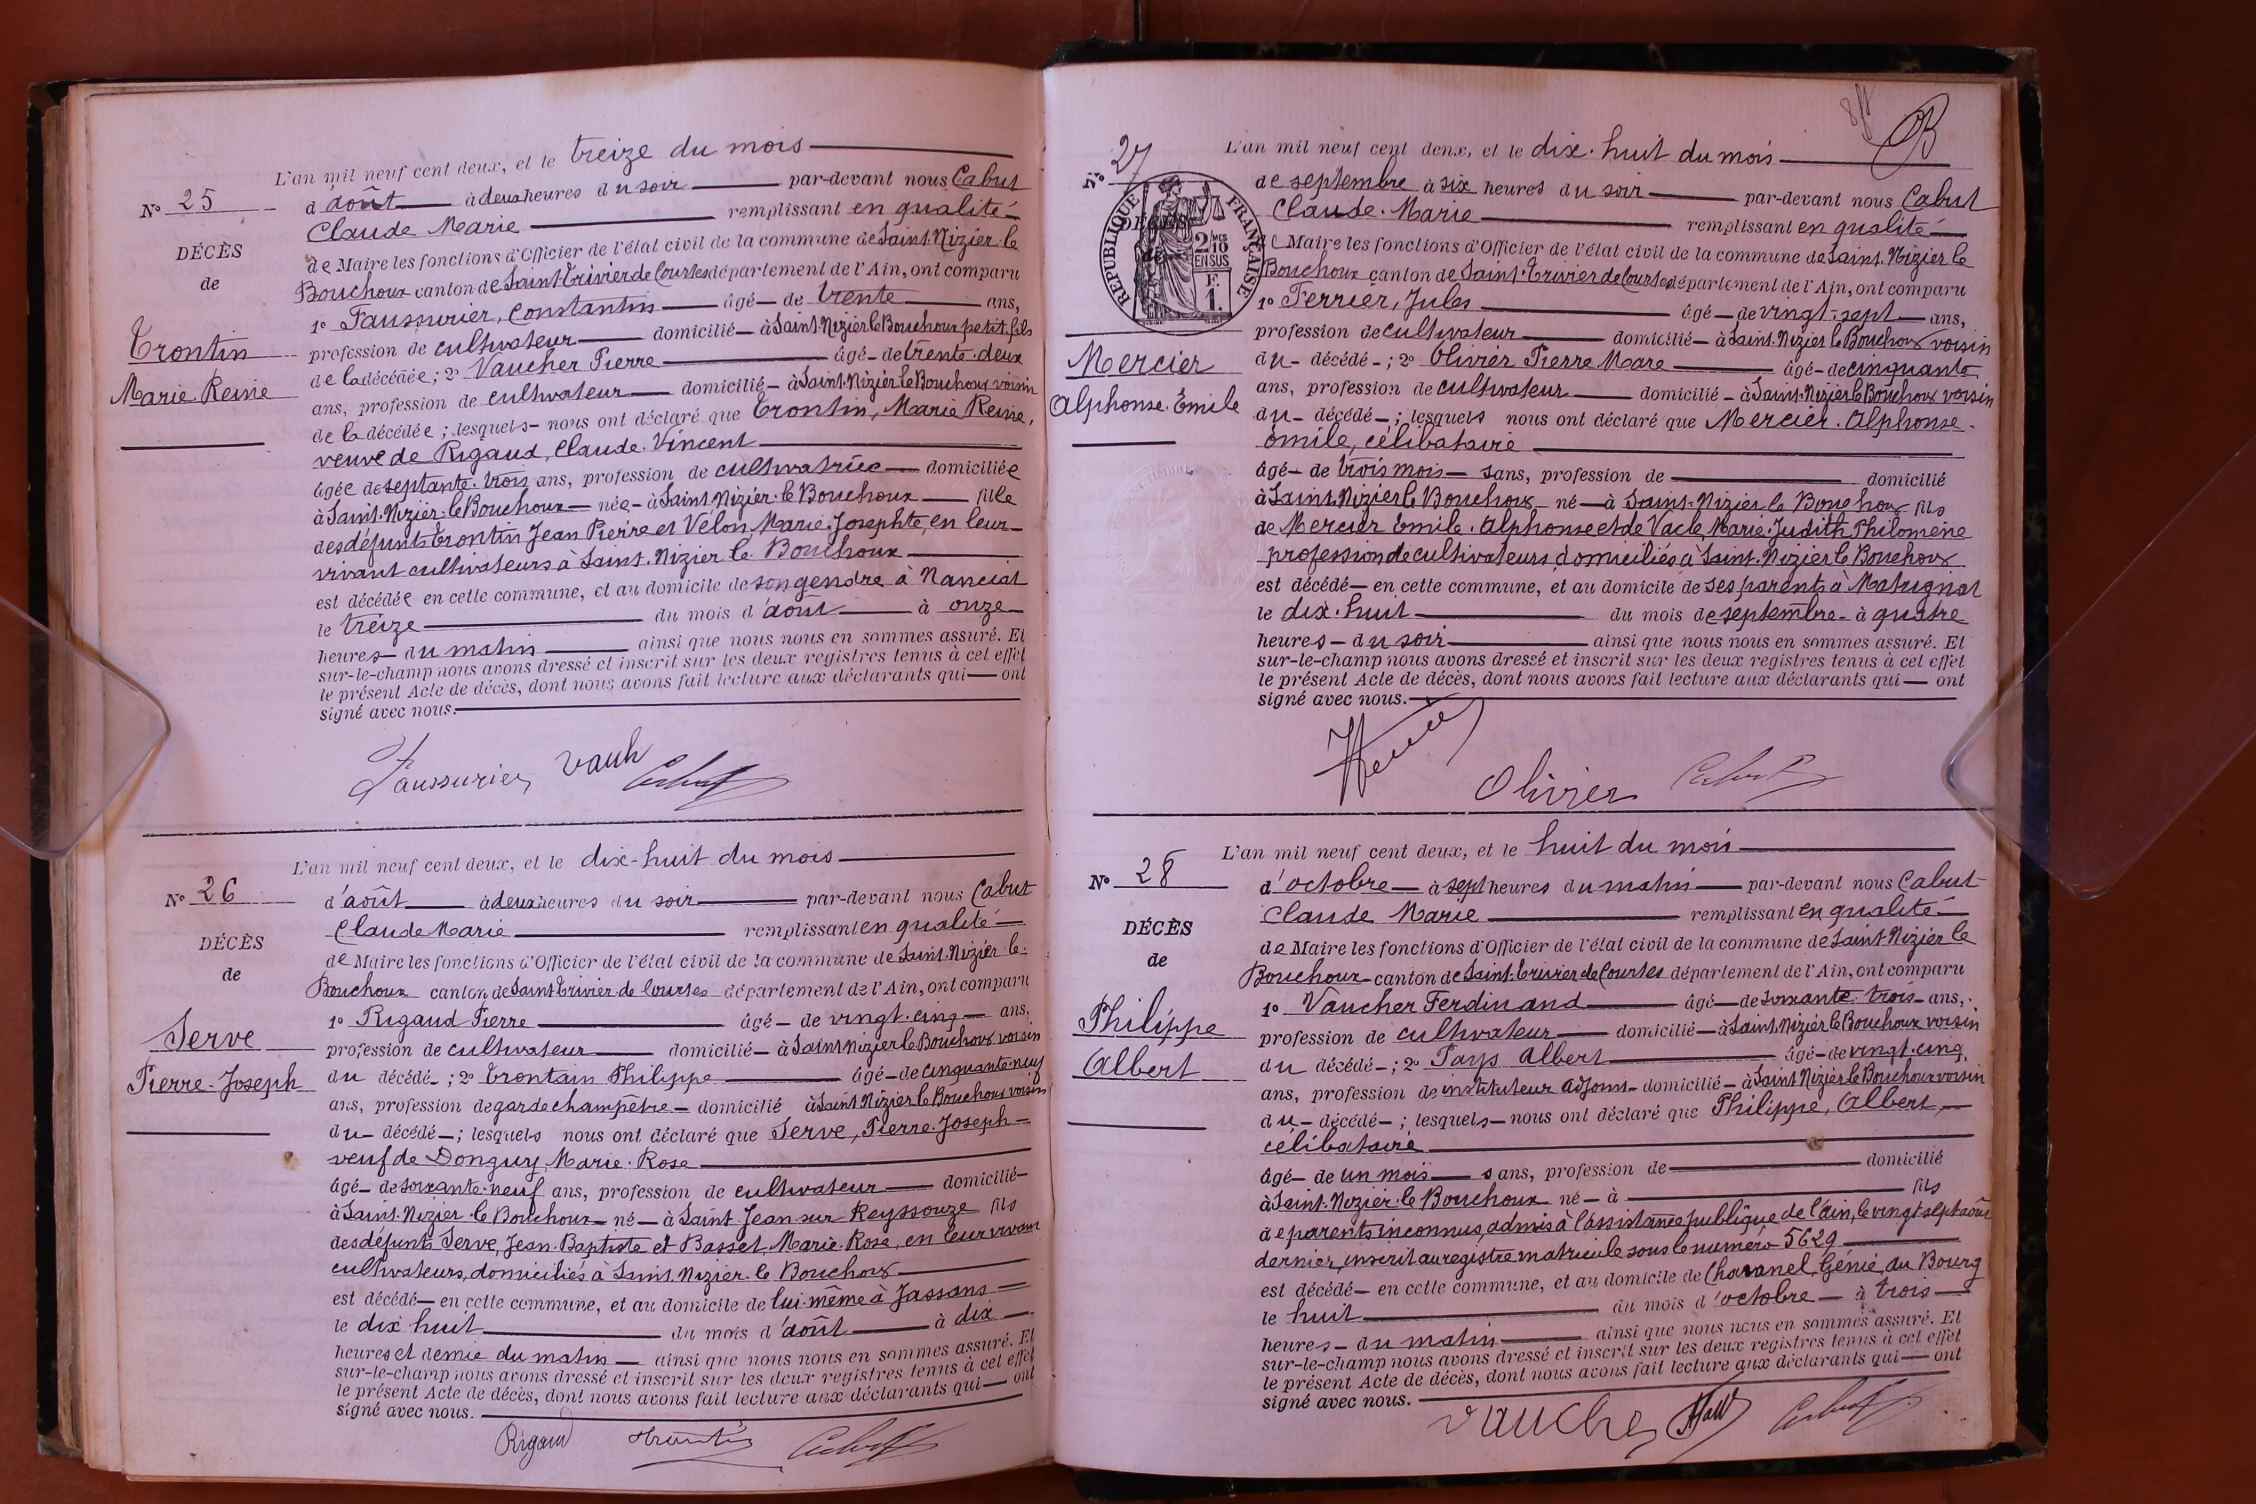 L'an mil neuf cent deux, et le treize du mois
N° 25
d'août à deux heures du soir par-devant nous Cabut
Claude Marie remplissant en qualité
DÉCÈS
de Maire les fonctions d'Officier de l'état civil de la commune de Saint-Nizier-le
de
Bouchoux canton de Saint Trivier de Courtes département de l'Ain, ont comparu
1° Faussurier, Constantin âgé de trente ans,
Trontin
profession de cultivateur domicilié à Saint-Nizier le Bouchoux petit-fils
de la décédée; 2° Vaucher Pierre âgé de trente-deux
Marie Reine
ans, profession de cultivateur domicilié à Saint-Nizier le Bouchoux voisin
de la décédée; lesquels nous ont déclaré que Trontin, Marie Reine,
veuve de Rigaud, Claude-Vincent
âgée de septante-trois ans, profession de cultivatrice domiciliée
à Saint-Nizier-le Bouchoux née à Saint Nizier-le Bouchoux fille
des défunts Trontin Jean Pierre et Vélon, Marie-Josephte, en leur
vivant cultivateurs à Saint-Nizier le Bouchoux
est décédée en cette commune, et au domicile de son gendre à Nanciat
le treize du mois d'août à onze
heures du matin ainsi que nous nous en sommes assuré. Et
sur-le-champ nous avons dressé et inscrit sur les deux registres tenus à cet effet
le présent Acte de décès, dont nous avons fait lecture aux déclarants qui ont
signé avec nous.
Faussurier Vauh Cabut
L'an mil neuf cent deux, et le dix-huit du mois
N° 26
d'août à deux heures du soir par-devant nous Cabut
Claude Marie remplissant en qualité
DÉCÈS
de Maire les fonctions d'Officier de l'état civil de la commune de Saint-Nizier-le-
de
Bouchoux canton de Saint Trivier-de Courtes département de l'Ain, ont comparu
1° Rigaud Pierre âgé de vingt-cinq ans,
Serve
profession de cultivateur domicilié à Saint Nizier le Bouchoux voisin
Pierre-Joseph
du décédé; 2° Trontain Philippe âgé de cinquante-neuf
ans, profession de garde champêtre domicilié à Saint Nizier le Bouchoux voisin
du décédé; lesquels nous ont déclaré que Serve, Pierre-Joseph
veuf de Donguy, Marie-Rose
âgé de soixante-neuf ans, profession de cultivateur domicilié
à Saint-Nizier-le Bouchoux né à Saint Jean sur Reyssouze fils
des défunts Serve, Jean-Baptiste et Basset, Marie-Rose, en leur vivant
cultivateurs, domiciliés à Saint-Nizier-le Bouchoux
est décédé en cette commune, et au domicile de lui-même à Jassans
le dix huit du mois d'août à dix
heures et demie du matin ainsi que nous nous en sommes assuré. Et
sur-le-champ nous avons dressé et inscrit sur les deux registres tenus à cet effet
le présent Acte de décès, dont nous avons fait lecture aux déclarants qui ont
signé avec nous.
Rigaud Cabut
L'an mil neuf cent deux, et le dix-huit du mois
N° 27
de septembre à six heures du soir par-devant nous Cabut
Claude-Marie remplissant en qualité
RÉPUBLIQUE FRANÇAISE
2/10 EN SUS
F. 1.
de Maire les fonctions d'Officier de l'état civil de la commune de Saint-Nizier le
Bouchoux canton de Saint-Trivier de Courtes département de l'Ain, ont comparu
1° Ferrier, Jules âgé de vingt-sept ans,
profession de cultivateur domicilié à Saint-Nizier le Bouchoux voisin
Mercier
du décédé; 2° Olivier Pierre Marie âgé de cinquante
ans, profession de cultivateur domicilié à Saint-Nizier le Bouchoux voisin
Alphonse-Emile
du décédé; lesquels nous ont déclaré que Mercier-Alphonse-
émile, célibataire
âgé de trois mois sans, profession de domicilié
à Saint-Nizier le Bouchoux né à Saint-Nizier-le Bouchoux fils
de Mercier Emile-Alphonse et de Vacle, Marie-Judith Philomène
profession de cultivateurs, domiciliés à Saint-Nizier le Bouchoux
est décédé en cette commune, et au domicile de ses parents à Matrignat
le dix-huit du mois de septembre à quatre
heures du soir ainsi que nous nous en sommes assuré. Et
sur-le-champ nous avons dressé et inscrit sur les deux registres tenus à cet effet
le présent Acte de décès, dont nous avons fait lecture aux déclarants qui ont
signé avec nous.
Olivier Cabut
L'an mil neuf cent deux, et le huit du mois
N° 28
d'octobre à sept heures du matin par-devant nous Cabut
Claude Marie remplissant en qualité
DÉCÈS
de Maire les fonctions d'Officier de l'état civil de la commune de Saint-Nizier le
de
Bouchoux canton de Saint-Trivier de Courtes département de l'Ain, ont comparu
1° Vaucher Ferdinand âgé de soixante-trois ans,
Philippe
profession de cultivateur domicilié à Saint-Nizier le Bouchoux voisin
Albert
du décédé; 2° Pays Albert âgé de vingt-cinq
ans, profession de instituteur adjoint domicilié à Saint Nizier le Bouchoux voisin
du décédé; lesquels nous ont déclaré que Philippe, Albert,
célibataire
âgé de un mois sans, profession de domicilié
à Saint-Nizier-le Bouchoux né à fils
de parents inconnus, admis à l'assistance publique de l'ain, le vingt sept août
dernier, inscrit au registre matricule sous le numéro 5629
est décédé en cette commune, et au domicile de Chavanel, Génie, au Bourg
le huit du mois d'octobre à trois
heures du matin ainsi que nous nous en sommes assuré. Et
sur-le-champ nous avons dressé et inscrit sur les deux registres tenus à cet effet
le présent Acte de décès, dont nous avons fait lecture aux déclarants qui ont
signé avec nous.
Vaucher Cabut